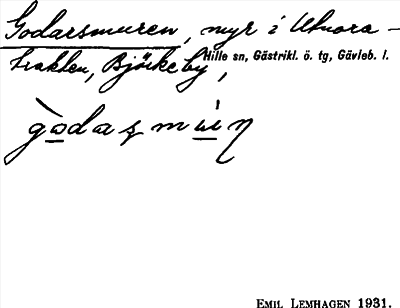 Godarsmuren, myr i Utnora-
trakten, Björkeby,
Hille sn, Gästrikl. ö. tg, Gävleb. l.
EMIL LEMHAGEN 1931.